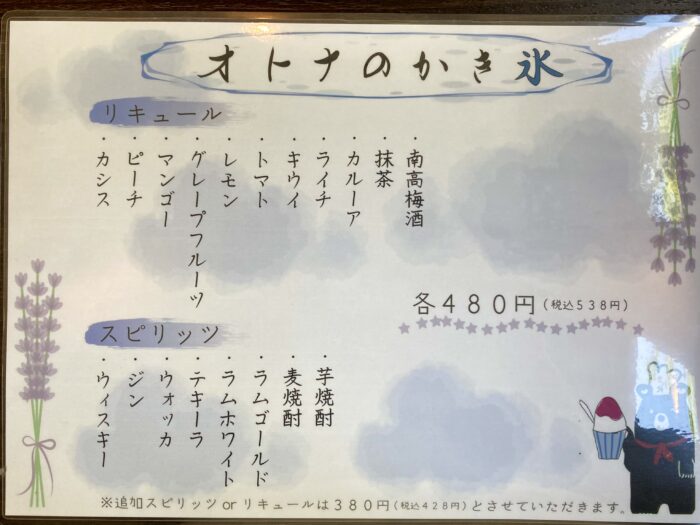 オトナのかき氷
リキュール
・南高梅酒
・抹茶
・カルーア
・ライチ
・キウイ
・トマト
・レモン
・グレープフルーツ
・マンゴー
・ピーチ
・カシス
各480円(税込538円)
スピリッツ
・芋焼酎
・麦焼酎
・ラムゴールド
・ラムホワイト
・テキーラ
・ウォッカ
・ジン
・ウィスキー
※追加スピリッツorリキュールは380円(税込428円)とさせていただきます。